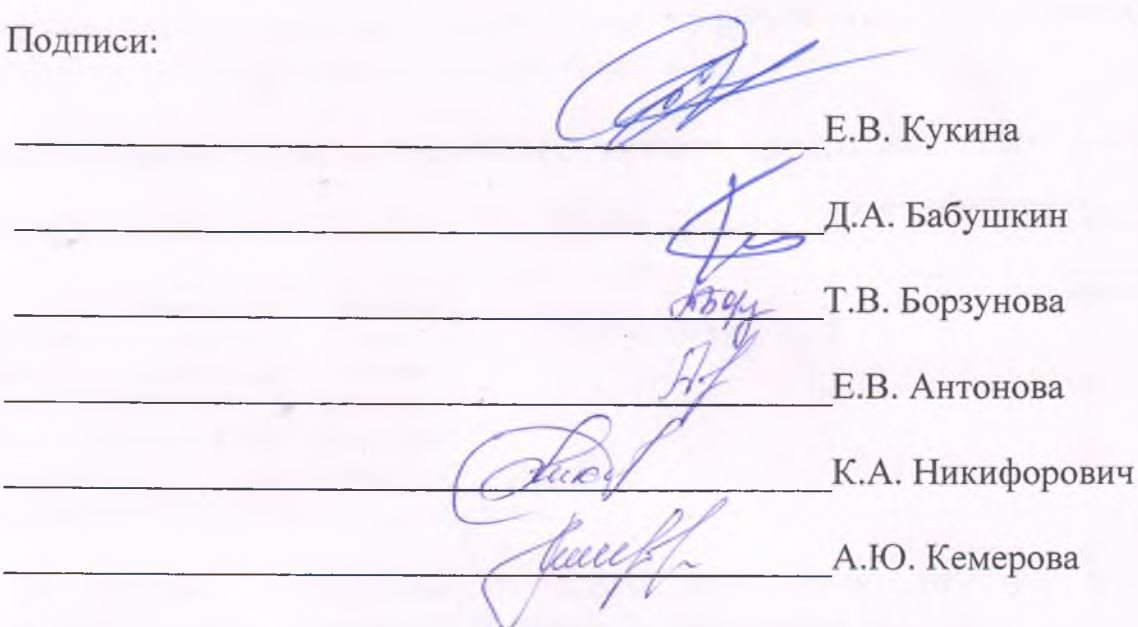 Подписи:
Е.В. Кукина
Д.А. Бабушкин
Т.В. Борзунова
Е.В. Антонова
К.А. Никифорович
А.Ю. Кемерова